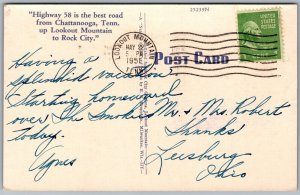 "Highway 58 is the best road
from Chattanooga, Tenn.
up Lookout Mountain
to Rock City."
25239N
LOOKOUT MOUNTAIN
MAY
PM
1956
TENN.
POST CARD
Having a
splendid vacation
Starting homeward
over the Smokies
today.
Agnes
Mr. & Mrs. Robert
Shanks
Leesburg
Ohio